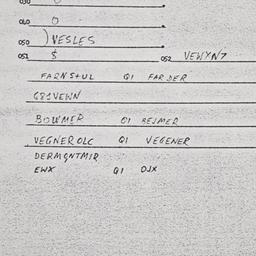 030
040 0
050 ) VESLES
051 $ 052 VEWYN7
FARNSTUL Q1 FARDER
G81VEWN
BOWMER 01 BEJMER
VEGNEROLC Q1 VEGENER
DERMGNTMIR
EWX Q1 OJX